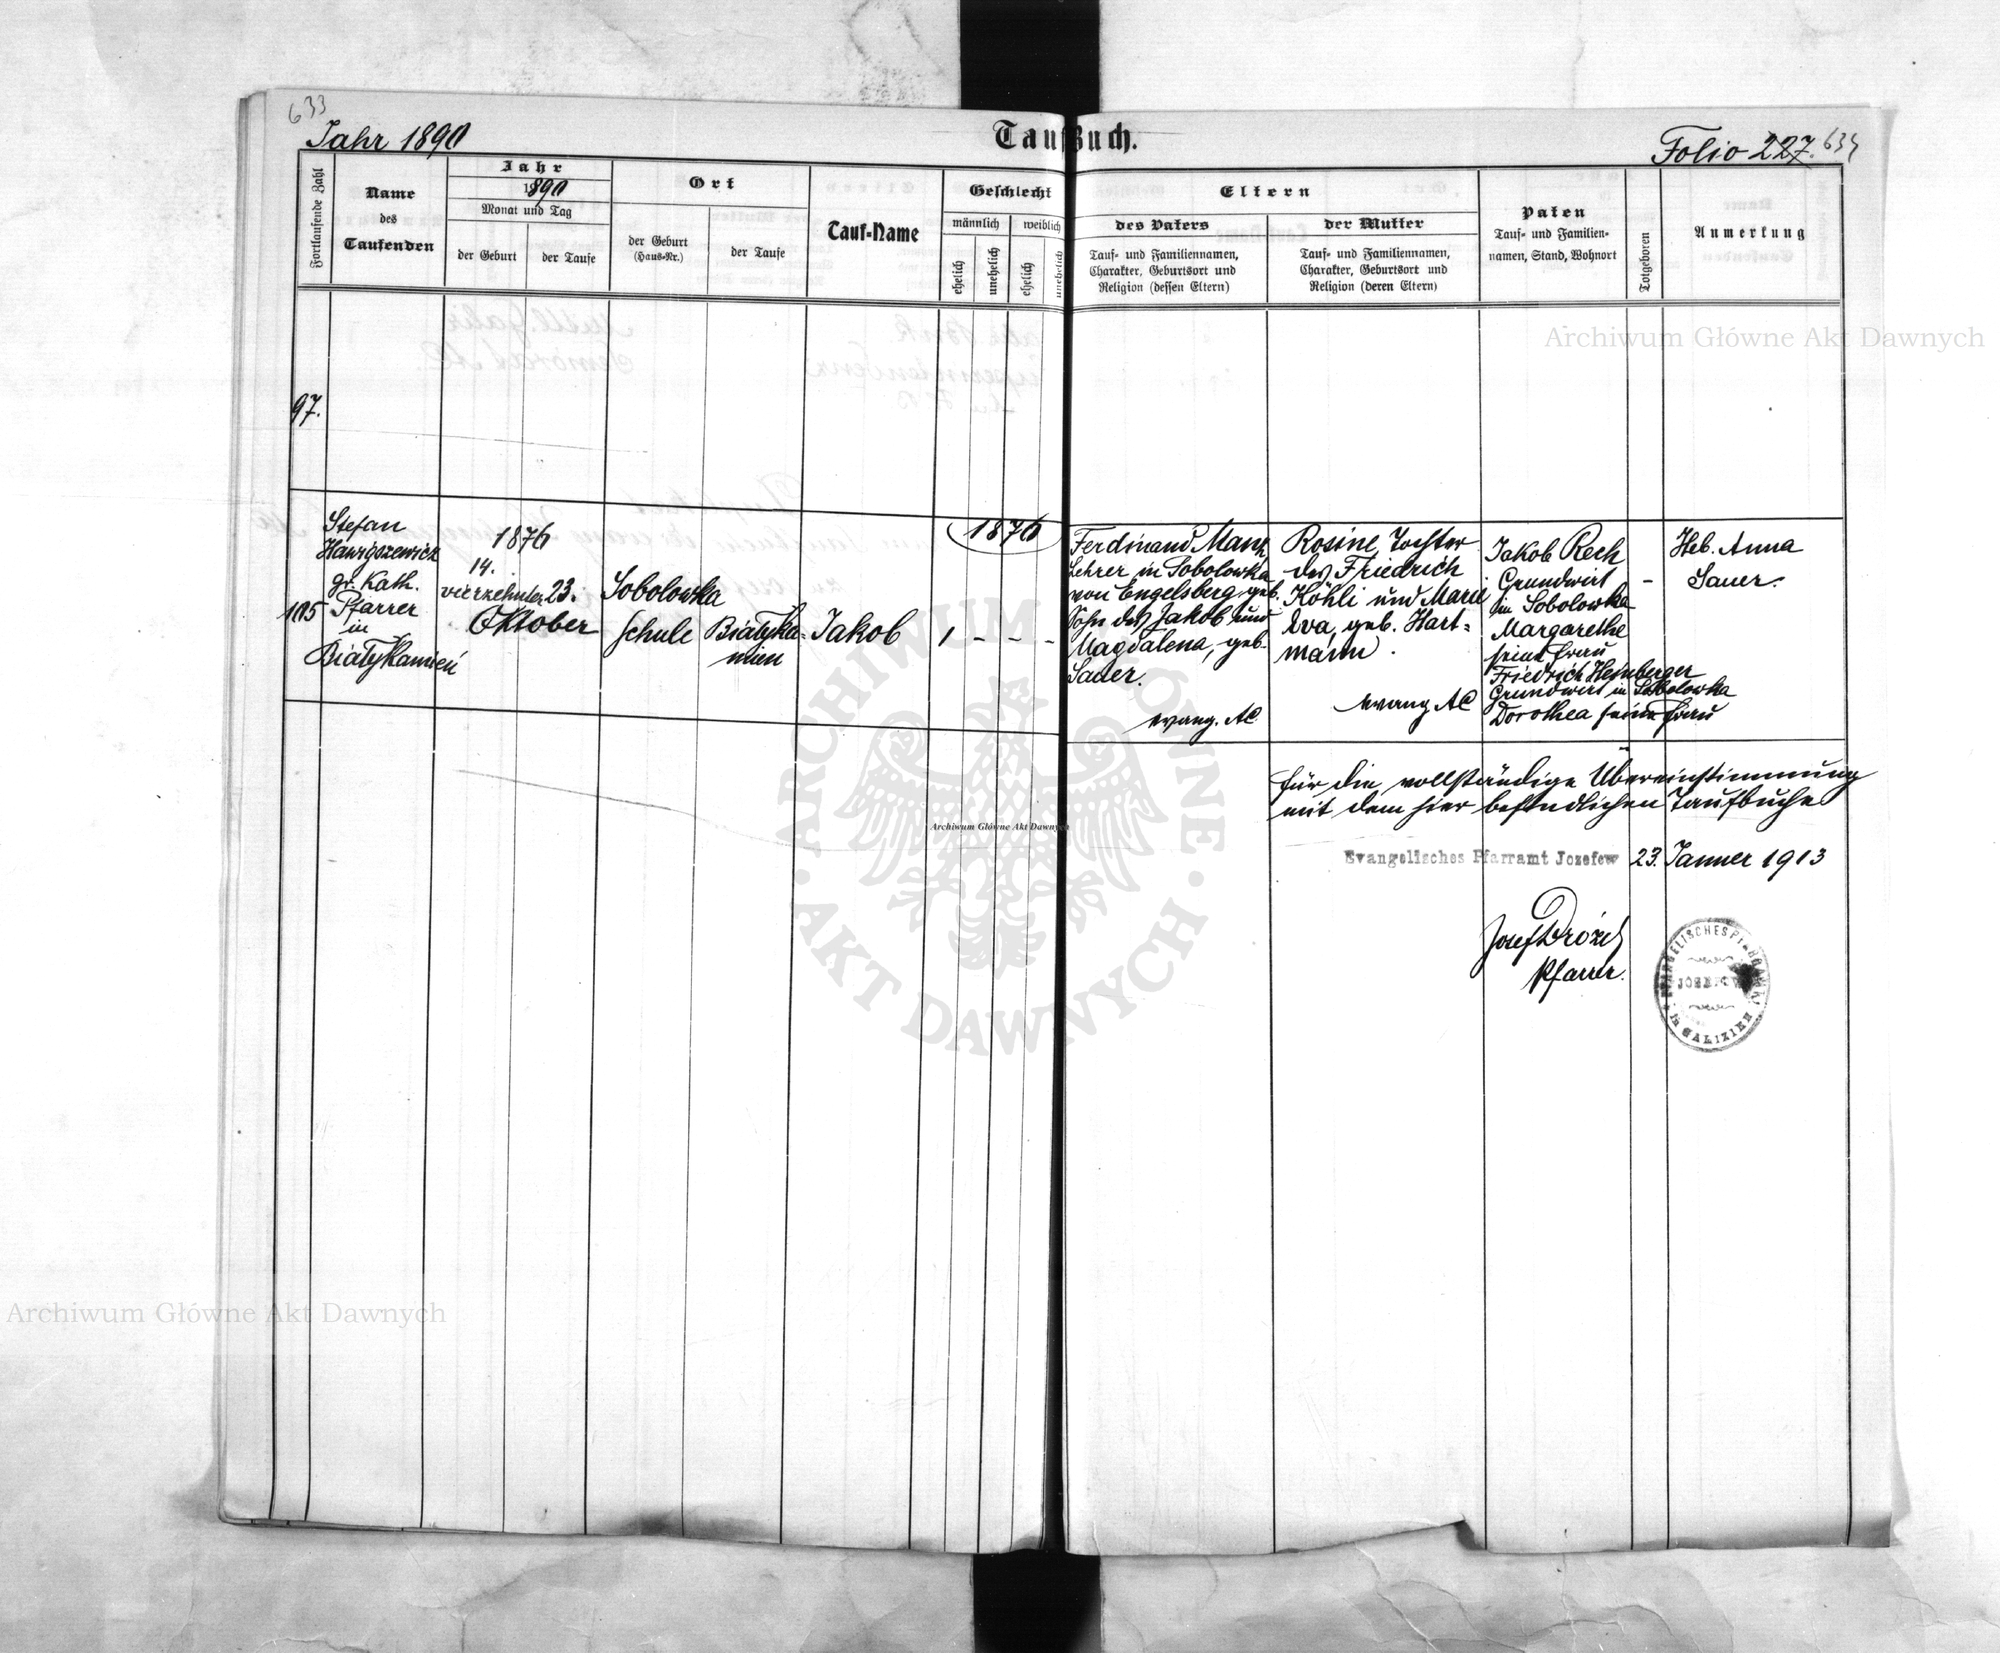 633
Jahr 1890
Taufbuch.
Folio 227.
Fortlaufende Zahl
Name
des
Taufenden
Jahr
1890
Monat und Tag
der Geburt
der Taufe
Ort
der Geburt
(Haus-Nr.)
der Taufe
Tauf-Name
Geschlecht
männlich
weiblich
ehelich
unehelich
ehelich
unehelich
Eltern
des Vaters
Tauf- und Familiennamen,
Charakter, Geburtsort und
Religion (dessen Eltern)
der Mutter
Tauf- und Familiennamen,
Charakter, Geburtsort und
Religion (deren Eltern)
Paten
Tauf- und Familien-
namen, Stand, Wohnort
Totgeboren
Anmerkung
97.
105
Stefan
gr. Kath.
Pfarrer
in
Białykamień
1876
14.
vierzehnten 23.
Oktober
Sobolowka
Schule
Białyka-
mien
Jakob
1 - - -
1876
Ferdinand Manz
Lehrer in Sobolowka
von Engelsberg, geb.
Sohn des Jakob und
Magdalena, geb.
Sauer.
evang. AC
Rosine, Tochter
des Friedrich
Köhli und Marie
Eva, geb. Hart=
mann.
evang AC
Jakob Rech
Grundwirt
in Sobolowka
Margarethe
seine Frau
Friedrich Heinberger
Grundwirt in Sobolowka
Dorothea seine Frau
-
Heb. Anna
Sauer.
für die vollständige Übereinstimmung
mit dem hier befindlichen Taufbuche
Evangelisches Pfarramt Jozefow 23. Jänner 1913
Josef Drózd
Pfarrer.
EVANGELISCHES PFARRAMT
JOZEFOW
in GALIZIEN
Archiwum Główne Akt Dawnych
Archiwum Główne Akt Dawnych
Archiwum Główne Akt Dawnych
ARCHIWUM GŁÓWNE · AKT DAWNYCH ·